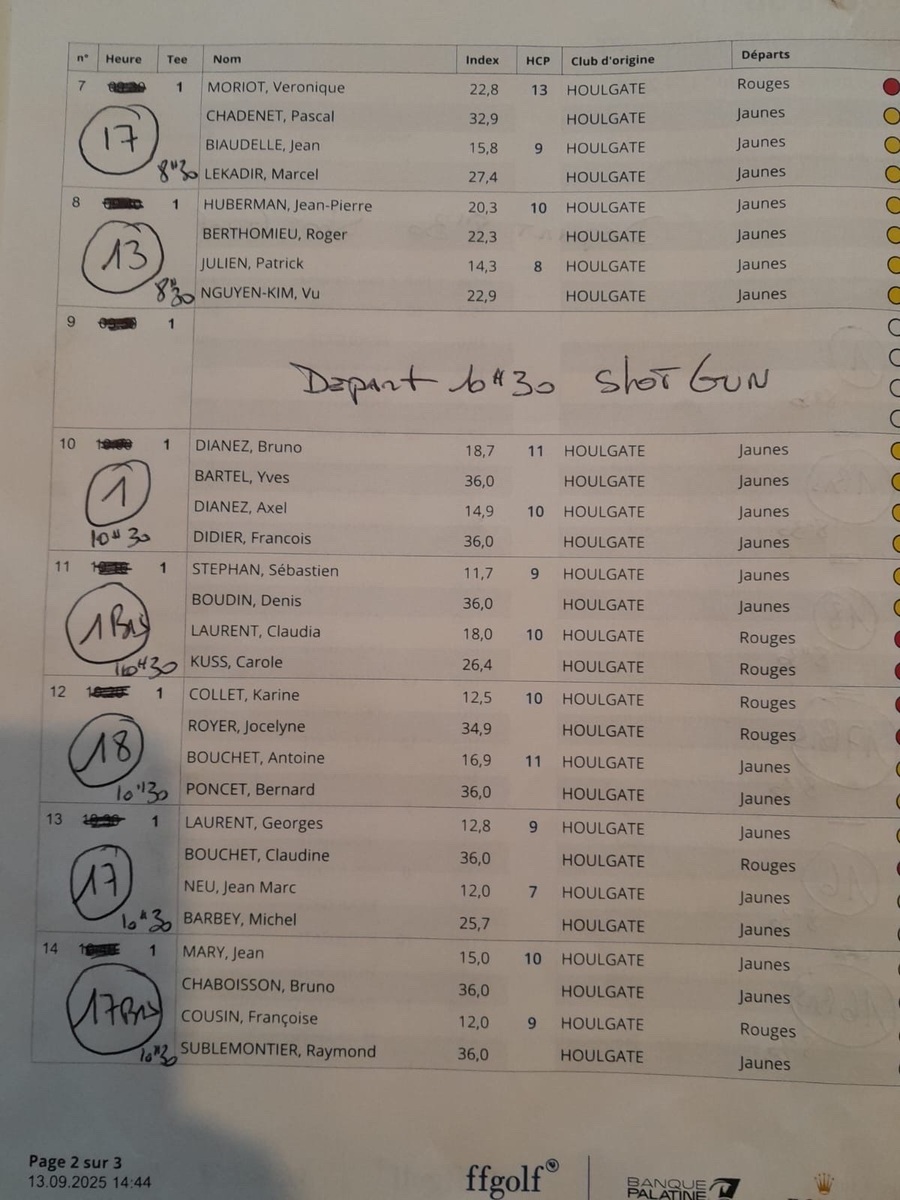 n° Heure Tee Nom Index HCP Club d'origine Départs
7 1 MORIOT, Veronique 22,8 13 HOULGATE Rouges
CHADENET, Pascal 32,9 HOULGATE Jaunes
17
BIAUDELLE, Jean 15,8 9 HOULGATE Jaunes
8H30 LEKADIR, Marcel 27,4 HOULGATE Jaunes
8 1 HUBERMAN, Jean-Pierre 20,3 10 HOULGATE Jaunes
BERTHOMIEU, Roger 22,3 HOULGATE Jaunes
13
JULIEN, Patrick 14,3 8 HOULGATE Jaunes
8H30 NGUYEN-KIM, Vu 22,9 HOULGATE Jaunes
9 1
Depart 10H30 SHOT GUN
10 1 DIANEZ, Bruno 18,7 11 HOULGATE Jaunes
BARTEL, Yves 36,0 HOULGATE Jaunes
1
DIANEZ, Axel 14,9 10 HOULGATE Jaunes
10H30 DIDIER, Francois 36,0 HOULGATE Jaunes
11 1 STEPHAN, Sébastien 11,7 9 HOULGATE Jaunes
BOUDIN, Denis 36,0 HOULGATE Jaunes
1 Bis LAURENT, Claudia 18,0 10 HOULGATE Rouges
10H30 KUSS, Carole 26,4 HOULGATE Rouges
12 1 COLLET, Karine 12,5 10 HOULGATE Rouges
ROYER, Jocelyne 34,9 HOULGATE Rouges
18
BOUCHET, Antoine 16,9 11 HOULGATE Jaunes
10H30 PONCET, Bernard 36,0 HOULGATE Jaunes
13 1 LAURENT, Georges 12,8 9 HOULGATE Jaunes
BOUCHET, Claudine 36,0 HOULGATE Rouges
17
NEU, Jean Marc 12,0 7 HOULGATE Jaunes
10H30 BARBEY, Michel 25,7 HOULGATE Jaunes
14 1 MARY, Jean 15,0 10 HOULGATE Jaunes
CHABOISSON, Bruno 36,0 HOULGATE Jaunes
17 Bis COUSIN, Françoise 12,0 9 HOULGATE Rouges
10H30 SUBLEMONTIER, Raymond 36,0 HOULGATE Jaunes
Page 2 sur 3
13.09.2025 14:44
ffgolf
BANQUE
PALATINE